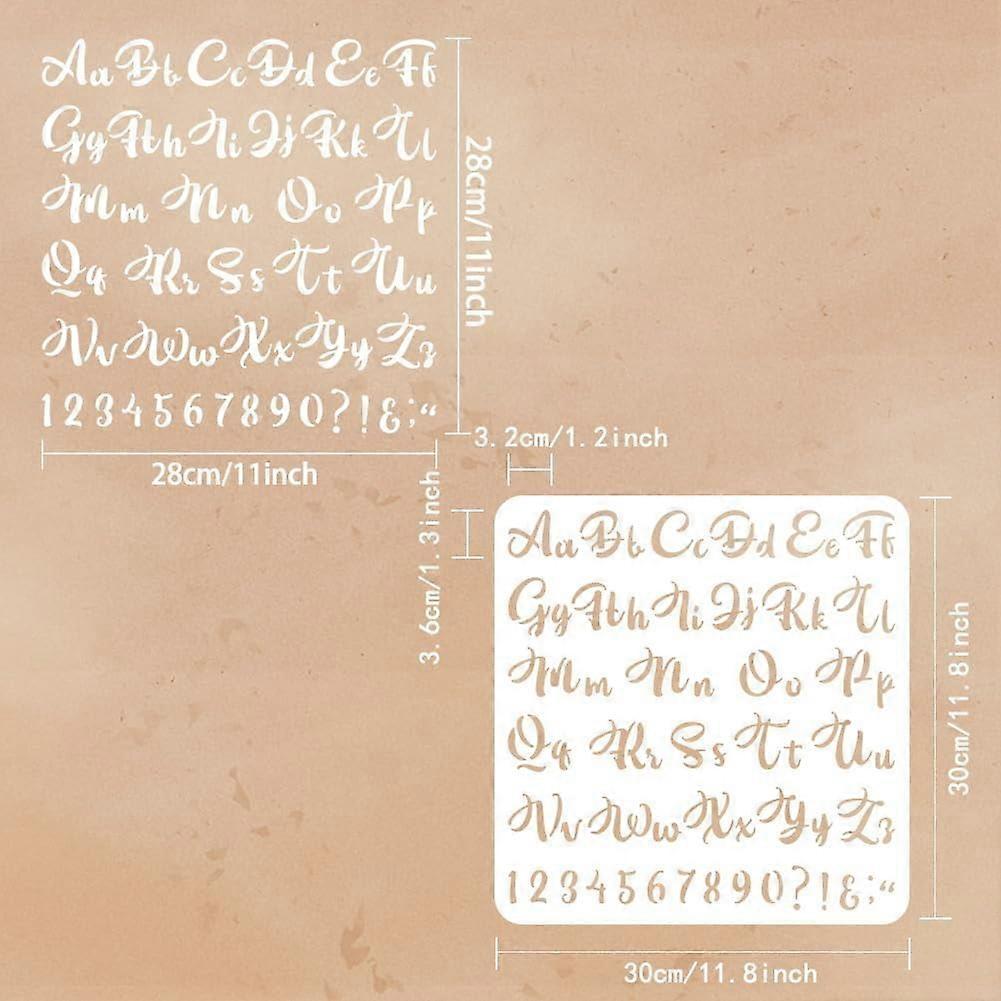 Aa Bb Cc Dd Ee Ff
Gg Hh Ii Jj Kk Ll
Mm Nn Oo Pp
Qq Rr Ss Tt Uu
Vv Ww Xx Yy Zz
1234567890?!&;“
28cm/11inch
28cm/11inch
3.2cm/1.2inch
3.6cm/1.3inch
Aa Bb Cc Dd Ee Ff
Gg Hh Ii Jj Kk Ll
Mm Nn Oo Pp
Qq Rr Ss Tt Uu
Vv Ww Xx Yy Zz
1234567890?!&;“
30cm/11.8inch
30cm/11.8inch